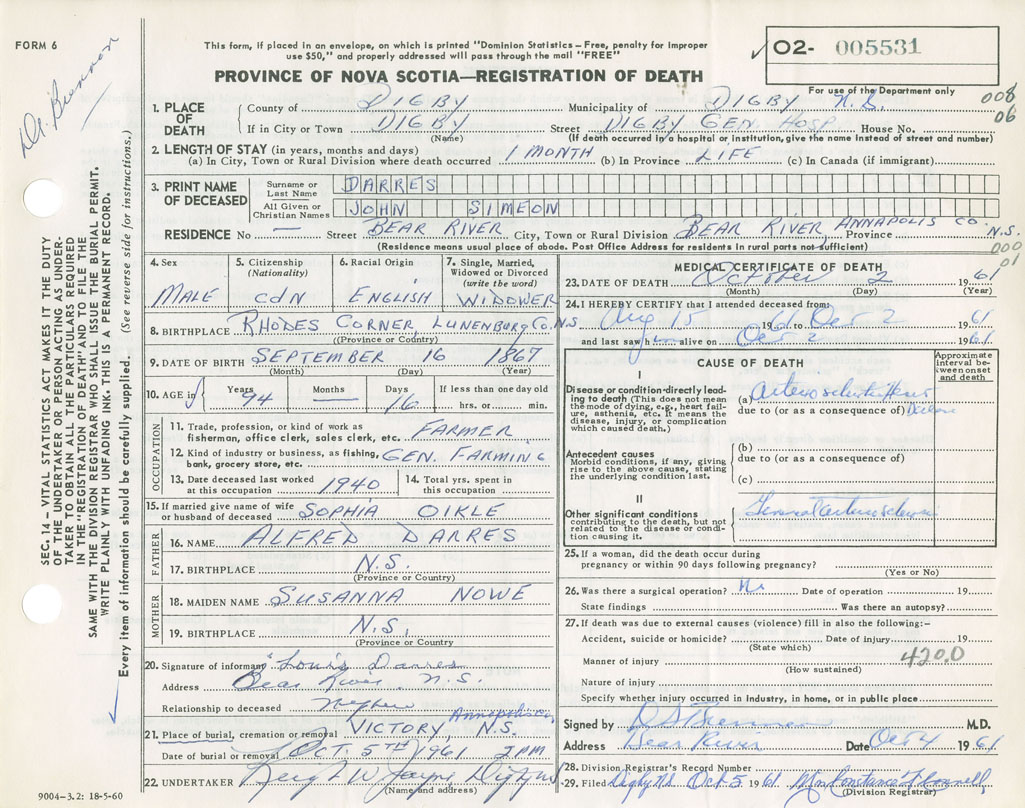 FORM 6
Dr. Brennan
This form, if placed in an envelope, on which is printed "Dominion Statistics – Free, penalty for improper
use $50," and properly addressed will pass through the mail "FREE"
PROVINCE OF NOVA SCOTIA—REGISTRATION OF DEATH
✓ O2- 005531
For use of the Department only
008
06
SEC. 14 – VITAL STATISTICS ACT MAKES IT THE DUTY
OF THE UNDERTAKER OR PERSON ACTING AS UNDER-
TAKER TO OBTAIN ALL THE PARTICULARS REQUIRED
IN THE "REGISTRATION OF DEATH" AND TO FILE THE
SAME WITH THE DIVISION REGISTRAR WHO SHALL ISSUE THE BURIAL PERMIT.
WRITE PLAINLY WITH UNFADING INK. THIS IS A PERMANENT RECORD.
Every item of information should be carefully supplied. (See reverse side for instructions.)
1. PLACE OF DEATH County of DIGBY Municipality of DIGBY N.S.
If in City or Town DIGBY Street DIGBY GEN. HOSP House No.
(Name) (If death occurred in a hospital or institution, give the name instead of street and number)
2. LENGTH OF STAY (in years, months and days)
(a) In City, Town or Rural Division where death occurred 1 MONTH (b) In Province LIFE (c) In Canada (if immigrant)
3. PRINT NAME OF DECEASED Surname or Last Name DARRES
All Given or Christian Names JOHN SIMEON
RESIDENCE No — Street BEAR RIVER City, Town or Rural Division BEAR RIVER ANNAPOLIS CO Province N.S.
(Residence means usual place of abode. Post Office Address for residents in rural parts not sufficient)
000
01
4. Sex MALE
5. Citizenship (Nationality) CDN
6. Racial Origin ENGLISH
7. Single, Married, Widowed or Divorced (write the word) WIDOWER
8. BIRTHPLACE RHODES CORNER, LUNENBURG Co. N.S
(Province or Country)
9. DATE OF BIRTH SEPTEMBER 16 1867
(Month) (Day) (Year)
10. AGE in Years 94 Months — Days 16 If less than one day old hrs. or min.
OCCUPATION
11. Trade, profession, or kind of work as
fisherman, office clerk, sales clerk, etc. FARMER
12. Kind of industry or business, as fishing,
bank, grocery store, etc. GEN. FARMING
13. Date deceased last worked
at this occupation 1940
14. Total yrs. spent in
this occupation
15. If married give name of wife
or husband of deceased SOPHIA OIKLE
FATHER
16. NAME ALFRED DARRES
17. BIRTHPLACE N.S.
(Province or Country)
MOTHER
18. MAIDEN NAME SUSANNA NOWE
19. BIRTHPLACE N.S.
(Province or Country)
20. Signature of informant Louis Darres
Address Bear River N.S.
Relationship to deceased Nephew
21. Place of burial, cremation or removal VICTORY, Annapolis Co. N.S.
Date of burial or removal OCT. 5TH 1961 2 PM
22. UNDERTAKER W Jayne, Digby NS
(Name and address)
9004–3.2: 18-5-60
MEDICAL CERTIFICATE OF DEATH
23. DATE OF DEATH October 2 1961
(Month) (Day) (Year)
24. I HEREBY CERTIFY that I attended deceased from:
Aug 15 1961 to Oct 2 1961
and last saw him alive on Oct 2 1961
CAUSE OF DEATH
Approximate
interval be-
tween onset
and death
I
Disease or condition directly lead-
ing to death (This does not mean
the mode of dying, e.g., heart fail-
ure, asthenia, etc. It means the
disease, injury, or complication
which caused death.)
(a) Arteriosclerotic Heart
due to (or as a consequence of) Disease
Antecedent causes
Morbid conditions, if any, giving
rise to the above cause, stating
the underlying condition last.
(b)
due to (or as a consequence of)
(c)
II
Other significant conditions
contributing to the death, but not
related to the disease or condi-
tion causing it.
General arteriosclerosis
25. If a woman, did the death occur during
pregnancy or within 90 days following pregnancy?
(Yes or No)
26. Was there a surgical operation? No Date of operation 19
State findings Was there an autopsy?
27. If death was due to external causes (violence) fill in also the following:–
Accident, suicide or homicide? Date of injury 19
(State which)
420.0
Manner of injury
(How sustained)
Nature of injury
Specify whether injury occurred in Industry, in home, or in public place
Signed by D S Brennan M.D.
Address Bear River Date Oct 4 1961
28. Division Registrar's Record Number
29. Filed Digby NS Oct 5 1961 Mrs Constance
(Division Registrar)